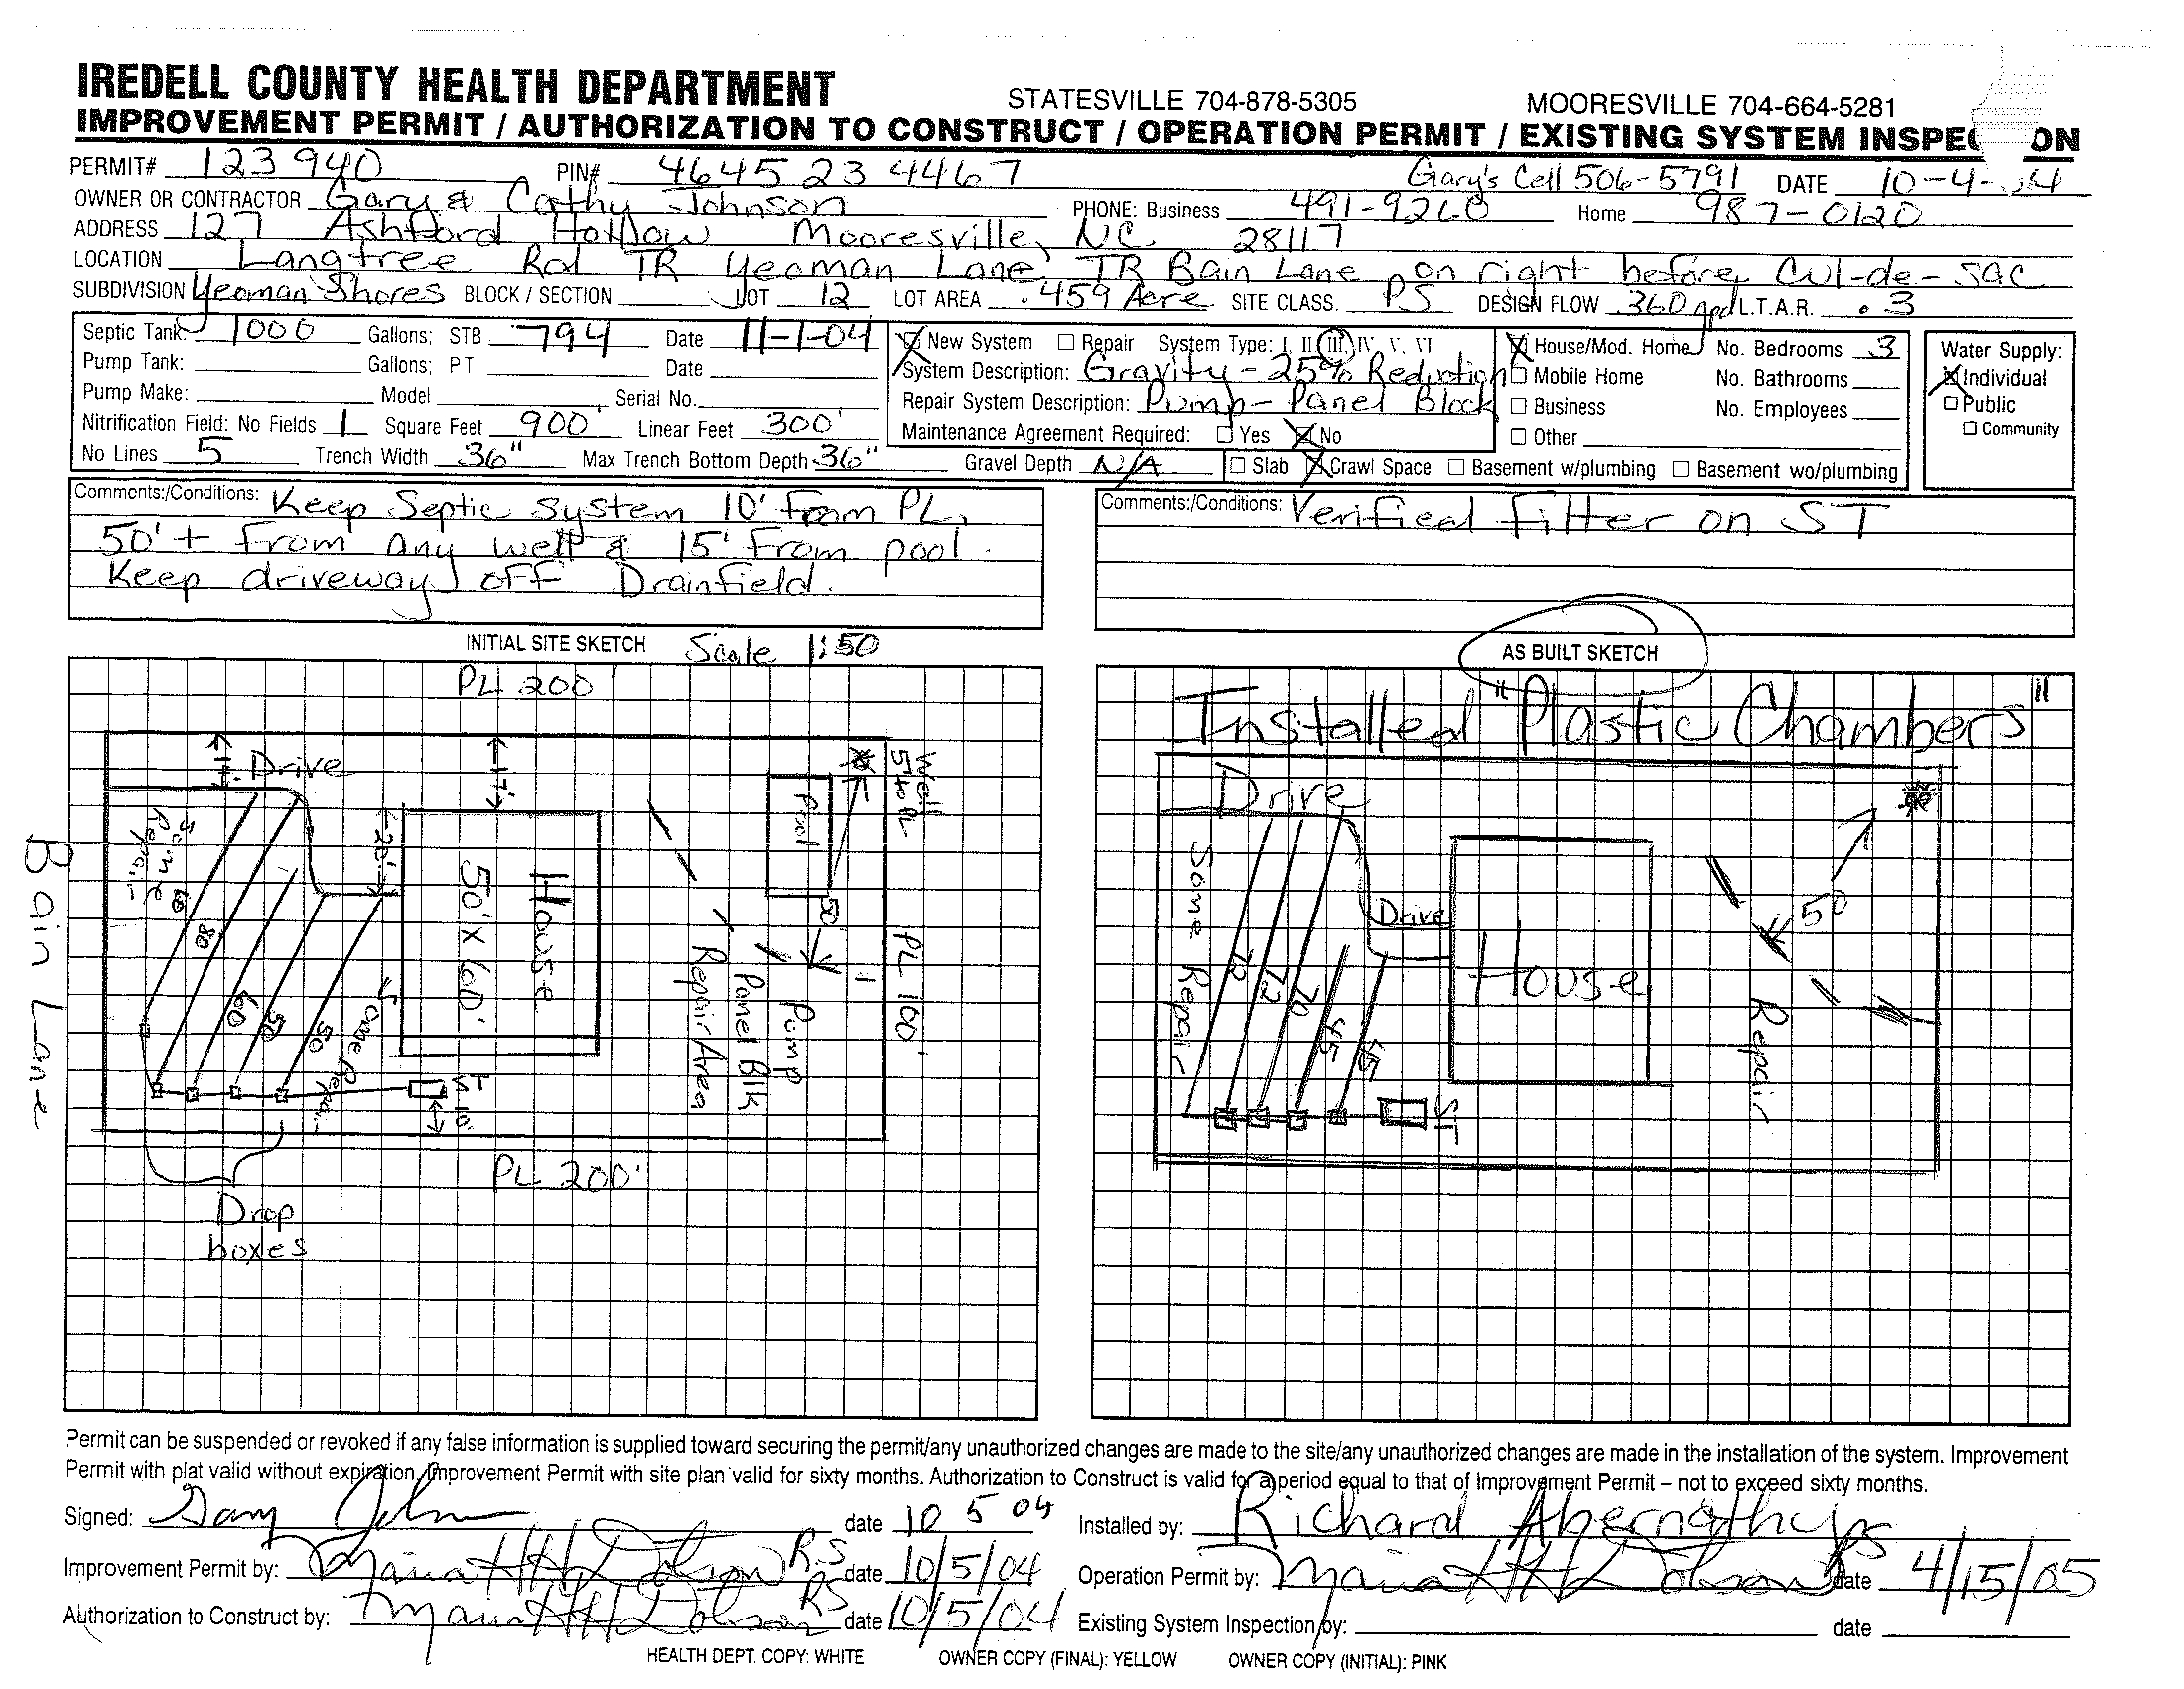 IREDELL COUNTY HEALTH DEPARTMENT STATESVILLE 704-878-5305 MOORESVILLE 704-664-5281
IMPROVEMENT PERMIT / AUTHORIZATION TO CONSTRUCT / OPERATION PERMIT / EXISTING SYSTEM
PERMIT# 123940 PIN# 4645 23 4467 Gary's Cell 506-5791 DATE 10-4-04
OWNER OR CONTRACTOR Gary & Cathy Johnson PHONE: Business 491-9260 Home 987-0120
ADDRESS 127 Ashford Hollow Mooresville, NC 28117
LOCATION Langtree Rd TR Yeoman Lane, TR Bain Lane on right before Cul-de-sac
SUBDIVISION Yeoman Shores BLOCK / SECTION LOT 12 LOT AREA .459 Acre SITE CLASS. PS DESIGN FLOW 360 gpd L.T.A.R. .3
Septic Tank: 1000 Gallons; STB 794 Date 11-1-04
Pump Tank: Gallons; PT Date
Pump Make: Model Serial No.
Nitrification Field: No Fields 1 Square Feet 900 Linear Feet 300'
No Lines 5 Trench Width 36" Max Trench Bottom Depth 36" Gravel Depth N/A
New System Repair System Type: I, II, III, IV, V, VI
System Description: Gravity - 25% Reduction
Repair System Description: Pump - Panel Block
Maintenance Agreement Required: Yes No
House/Mod. Home No. Bedrooms 3
Mobile Home No. Bathrooms
Business No. Employees
Other
Slab Crawl Space Basement w/plumbing Basement wo/plumbing
Water Supply:
Individual
Public
Community
Comments:/Conditions: Keep Septic system 10' from PL,
50'+ from any well & 15' from pool.
Keep driveway off Drainfield.
Comments:/Conditions: Verified filter on ST
INITIAL SITE SKETCH Scale 1:50
PL 200
Drive
14'
17'
Pool
Well
5' to PL
Some
Repair
20'
House
50' x 60'
60
80
60
50
50
50
PL 100'
Pump
Panel Blk
Repair Area
Some Repair
ST
10'
Bain Lane
PL 200'
Drop
boxes
AS BUILT SKETCH
Installed "Plastic Chambers"
Drive
Some Repair
Drive
House
72
72
70
45
45
50
Repair
ST
Permit can be suspended or revoked if any false information is supplied toward securing the permit/any unauthorized changes are made to the site/any unauthorized changes are made in the installation of the system. Improvement
Permit with plat valid without expiration, Improvement Permit with site plan valid for sixty months. Authorization to Construct is valid for a period equal to that of Improvement Permit – not to exceed sixty months.
Signed: Gary Johnson date 10 5 04
Installed by: Richard Abernathy
Improvement Permit by: RS date 10/5/04
Operation Permit by: RS date 4/15/05
Authorization to Construct by: RS date 10/5/04
Existing System Inspection by: date
HEALTH DEPT. COPY: WHITE OWNER COPY (FINAL): YELLOW OWNER COPY (INITIAL): PINK